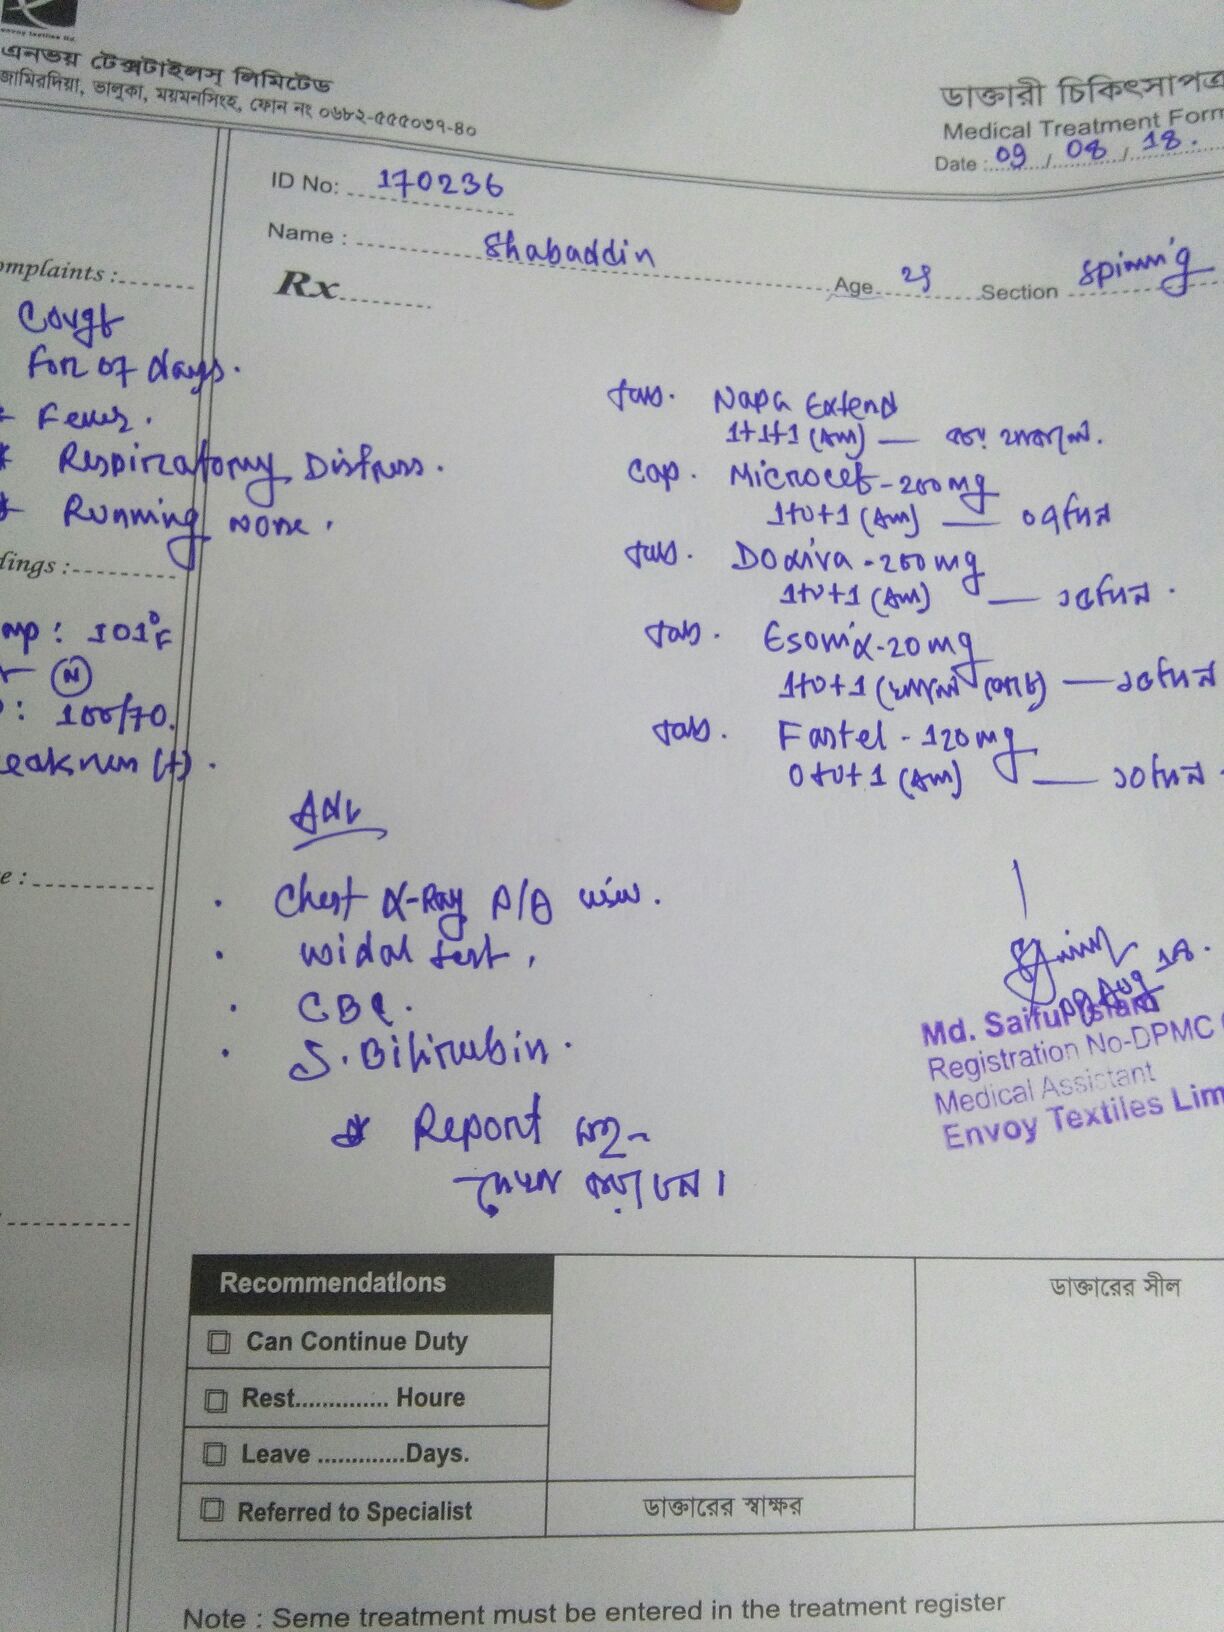 এনভয় টেক্সটাইলস্ লিমিটেড
জামিরদিয়া, ভালুকা, ময়মনসিংহ, ফোন নং ০৬৮২-৫৫৫০৩৭-৪০
ডাক্তারী চিকিৎসাপত্র
Medical Treatment Form
Date : 09 / 08 / 18.
ID No: 170236
Name : Shabaddin
Age Section Spinnig
Rx
omplaints :
Cough
For 07 days.
Fever.
* Respiratory Distress.
Running nose.
dings :
mp : 101°F
N
: 100/70.
eakness (+).
e :
Tab. Napa Extend
1+1+1 (Am) —
Cap. Microcef - 200mg
1+0+1 (Am) — ০৭দিন
Tab. Doxiva - 200mg
1+0+1 (Am) — ১৫দিন.
Tab. Esomix - 20mg
1+0+1 — ১৫দিন
Tab. Fastel - 120mg
0+0+1 (Am) — ১০দিন
Adv
. Chest X-Ray P/A view.
. Widal test,
. CBC.
. S. Bilirubin.
* Report সহ-
দেখা করবেন।
09 Aug 18.
Md. Saiful Islam
Registration No-DPMC
Medical Assistant
Envoy Textiles Lim
Recommendations
Can Continue Duty
Rest.............. Houre
Leave .............Days.
Referred to Specialist
ডাক্তারের স্বাক্ষর
ডাক্তারের সীল
Note : Seme treatment must be entered in the treatment register